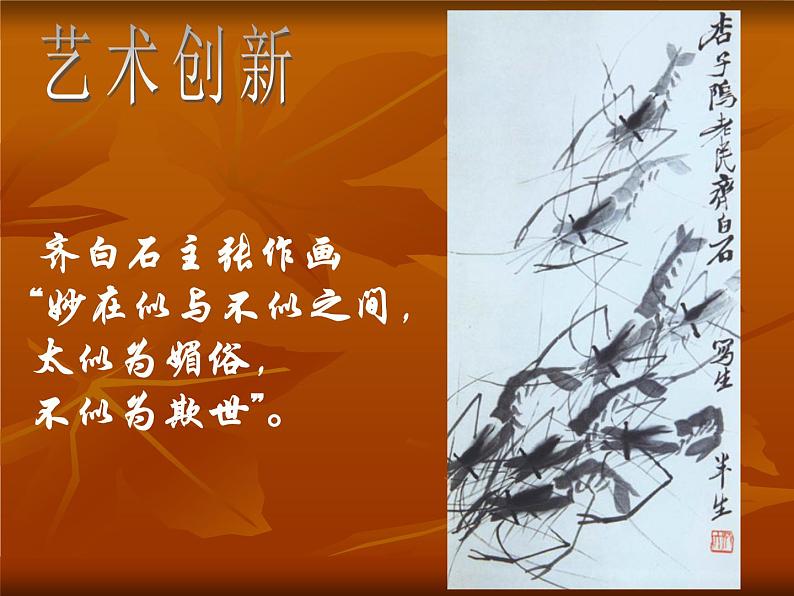 艺术创新
齐白石主张作画
“妙在似与不似之间，
太似为媚俗，
不似为欺世”。
杏子隖老民齐白石
写生
半生